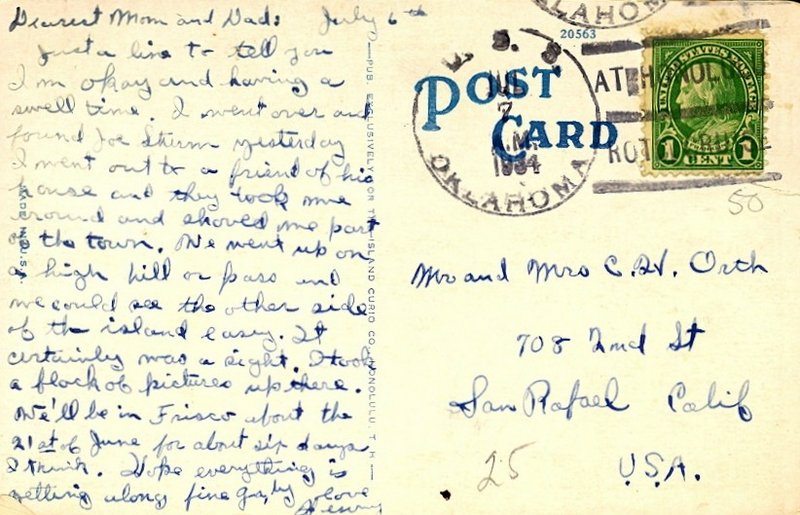 Dearest Mom and Dad: July 6th
Just a line to tell you
I'm okay and having a
swell time. I went over and
found Joe Sturm yesterday
I went out to a friend of his
house and they took me
around and showed me part
of the town. We went up on
a high hill or pass and
we could see the other side
of the island easy. It
certainly was a sight. I took
a flock of pictures up there.
We'll be in Frisco about the
21st of June for about six days
I think. Hope everything is
getting along fine love
Henry
MADE IN U.S.A.
PUB. EXCLUSIVELY FOR THE ISLAND CURIO CO. HONOLULU, T. H.
20563
POST
CARD
U. S. S.
JUL
7
A.M.
1934
OKLAHOMA
OKLAHOMA
AT HONOLULU
UNITED STATES POSTAGE
1 CENT 1
50
Mr and Mrs C.W. Orth
708 2nd St
San Rafael Calif
U.S.A.
25